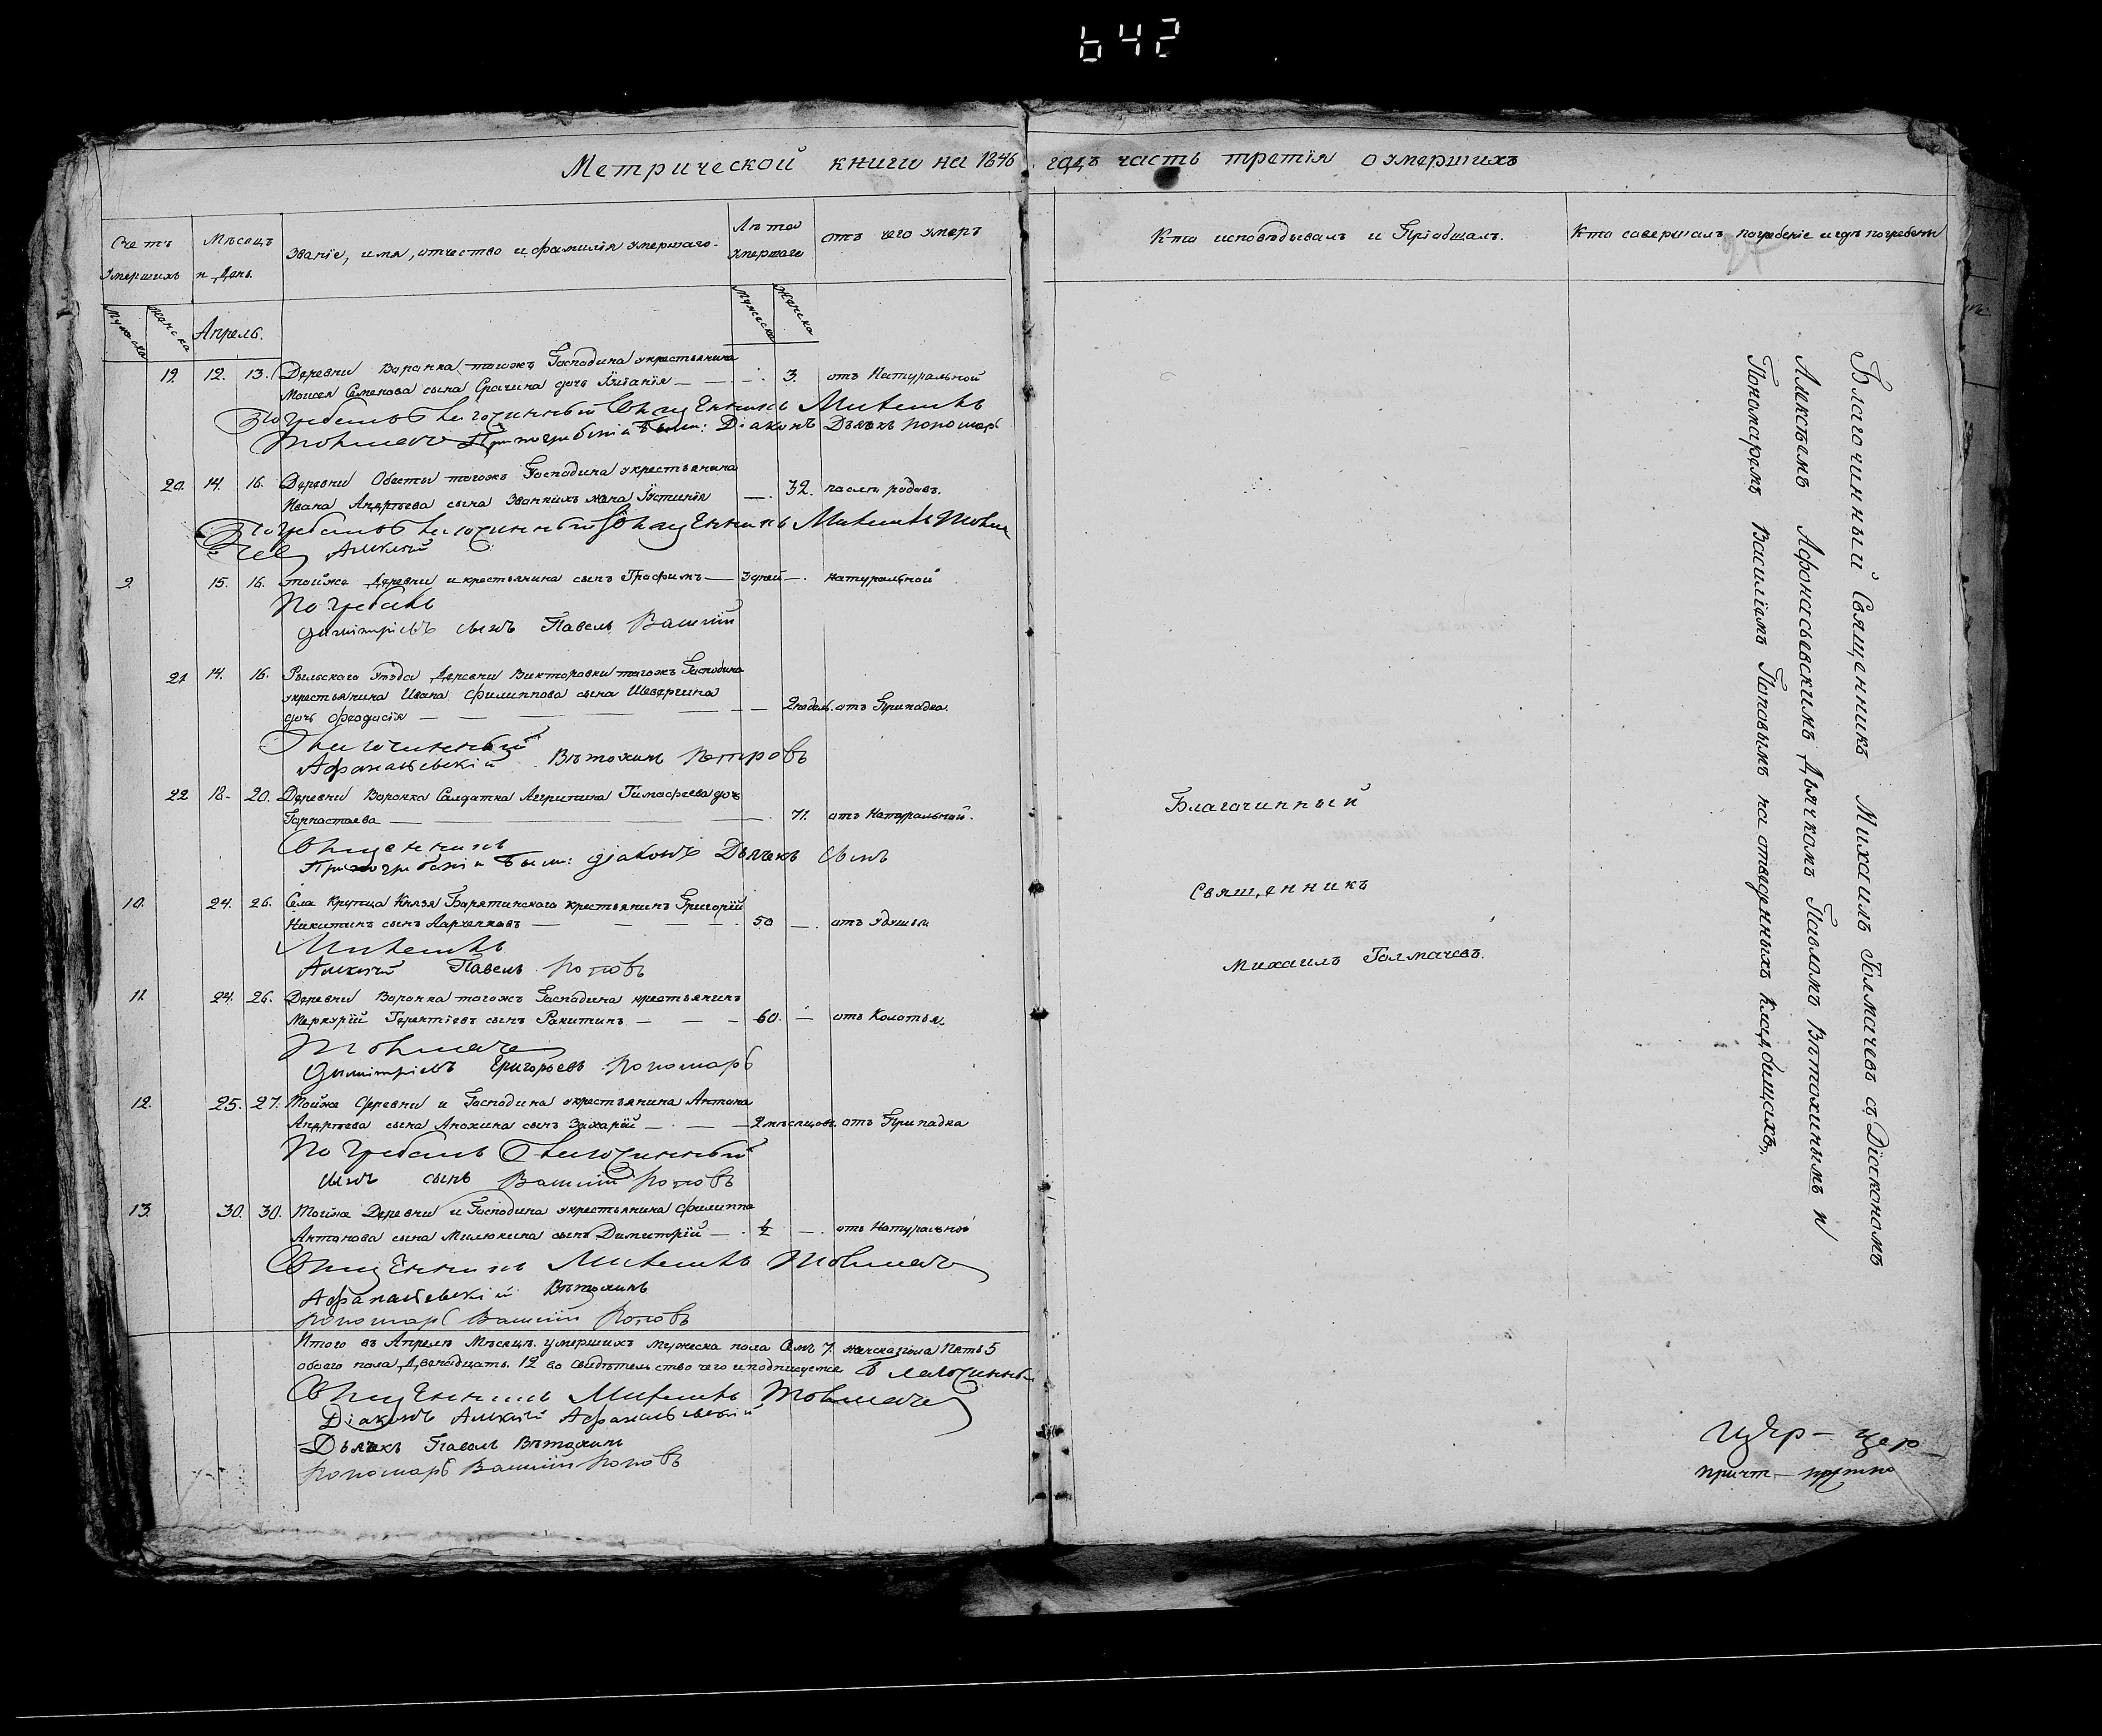 642
Метрической книги на 1846 годъ часть третія о умершихъ
Счетъ умершихъ
Мѣсяцъ и день
Званіе, имя, отчество и фамилія умершаго.
Лѣта умершаго
отъ чего умеръ
Кто исповѣдывалъ и Пріобщалъ.
Кто совершалъ погребеніе и гдѣ погребены
Мужеска
Женска
Апрель.
Мужеска
Женска
19. 12. 13. Деревни Воронка тогожъ Господина укрестьянина
Моисея Семенова сына дочь 3. отъ Натуральной
Погребалъ Благочинный Священникъ Михаилъ
Толмачевъ При погребеніи были: Діаконъ Дьячекъ пономарь
20. 14. 16. Деревни тогожъ Господина укрестьянина
Ивана Андрѣева сына жена Іустинія — 32. послѣ родовъ.
Погребалъ Благочинный Священникъ Михаилъ Толма
чевъ Алексѣй
9. 15. 16. тойже Деревни и крестьянина сынъ Трофимъ — 3 дней —. натуральной
Погребалъ
Димитріевъ сынъ Павелъ Василій
21 14. 16. Рыльскаго уѣзда Деревни Викторовки тогожъ Господина
укрестьянина Ивана Филиппова сына Шевергина
дочь Феодосія — 2 недель. отъ Припадка.
Благочинный
Афанасьевскій Вѣтохинъ Петровъ
22 18. 20. Деревни Воронка Салдатка Агрипина Тимофеева дочь
Горностаева — 71. отъ Натуральной.
Священникъ
При погребеніи были: діаконъ Дьячекъ сынъ
10. 24. 26. Села Крупца Князя Борятинскаго крестьянинъ Григорій
Никитинъ сынъ — 50 —. отъ Удушья
Михаилъ
Алексѣй Павелъ Поповъ
11. 24. 26. Деревни Воронка тогожъ Господина крестьянинъ
Меркурій Терентіевъ сынъ Ракитинъ — 60. — отъ Колотья.
Толмачевъ
Димитріевъ Григорьевъ пономарь
12. 25. 27. Тойже деревни и Господина укрестьянина Антона
Андрѣева сына Анохина сынъ Захарій — 2 мѣсяцовъ. отъ Припадка
Погребалъ Благочинный
сынъ сынъ Василій Поповъ
13. 30. 30. Тойже Деревни и Господина укрестьянина Филиппа
Антонова сына Милюхина сынъ Димитрій — ½ —. отъ Натуральной
Священникъ Михаилъ Толмачевъ
Афанасьевскій Вѣтохинъ
пономарь Василій Поповъ
Итого въ Апрелѣ Мѣсяцѣ умершихъ мужеска пола Семь 7. женска пола Пять 5
обоего пола Двенадцать. 12 во свидѣтельство чего и подписуемся Благочинный
Священникъ Михаилъ Толмачевъ
Діаконъ Алексѣй Афанасьевскій
Дьячекъ Павелъ Вѣтохинъ
пономарь Василій Поповъ
Благочинный
Священникъ
Михаилъ Толмачевъ.
Благочинный Священникъ Михаилъ Толмачевъ съ Діакономъ
Алексѣемъ Афонасьевскимъ Дьячкомъ Павломъ Вѣтохинымъ и
Пономаремъ Василіемъ Поповымъ на отведенныхъ кладбищахъ.
причт —